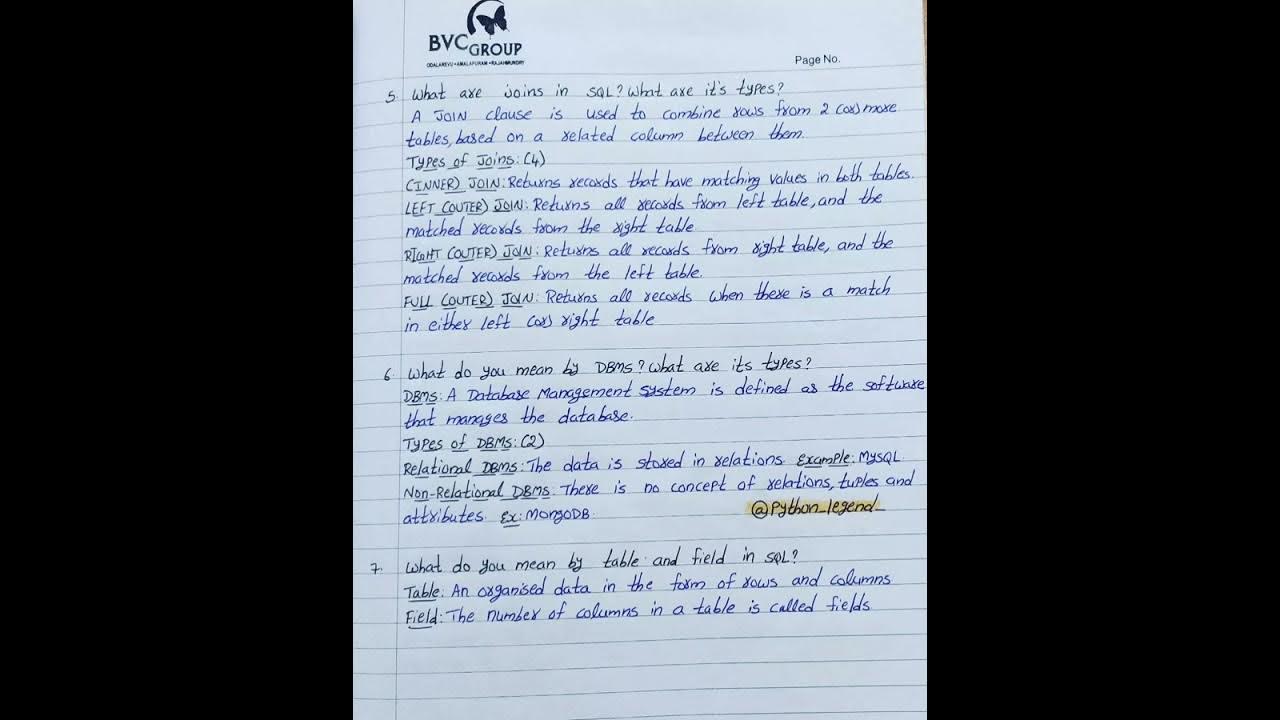 BVC GROUP
ODALAREVU • AMALAPURAM • RAJAHMUNDRY
Page No.
5. What are joins in SQL? What are it's types?
A JOIN clause is used to combine rows from 2 (or) more
tables, based on a related column between them.
Types of Joins: (4)
(INNER) JOIN: Returns records that have matching values in both tables.
LEFT (OUTER) JOIN: Returns all records from left table, and the
matched records from the right table
RIGHT (OUTER) JOIN: Returns all records from right table, and the
matched records from the left table.
FULL (OUTER) JOIN: Returns all records when there is a match
in either left (or) right table
6. What do you mean by DBMS? What are its types?
DBMS: A Database Management System is defined as the software
that manages the database.
Types of DBMS: (2)
Relational DBMS: The data is stored in relations. Example: MySQL.
Non-Relational DBMS: There is no concept of relations, tuples and
attributes. Ex: MongoDB.
@Python_legend_
7. What do you mean by table and field in SQL?
Table: An organised data in the form of rows and columns
Field: The number of columns in a table is called fields